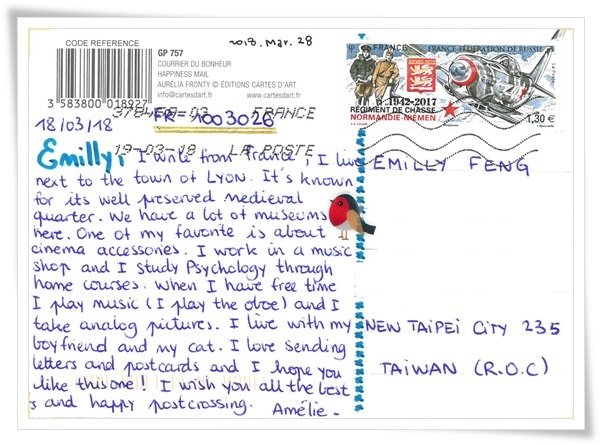 CODE REFERENCE
3 583800 018927
GP 757
COURRIER DU BONHEUR
HAPPINESS MAIL
AURÉLIA FRONTY © ÉDITIONS CARTES D'ART
info@cartesdart.fr www.cartesdart.fr
2018. Mar. 28
FRANCE
FRANCE-FÉDÉRATION DE RUSSIE
1942-2017
RÉGIMENT DE CHASSE
NORMANDIE-NIÉMEN
1,30 €
37840A-03 FRANCE
FR-1003026
18/03/18
19-03-18 LA POSTE
Emilly, I write from France! I live
next to the town of Lyon. It's known
for its well preserved medieval
quarter. We have a lot of museums
here. One of my favorite is about
cinema accessories. I work in a music
shop and I study Psychology through
home courses. When I have free time
I play music (I play the oboe) and I
take analog pictures. I live with my
boyfriend and my cat. I love sending
letters and postcards and I hope you
like this one! I wish you all the best
and happy postcrossing. Amélie -
EMILLY FENG
NEW TAIPEI CITY 235
TAIWAN (R.O.C)